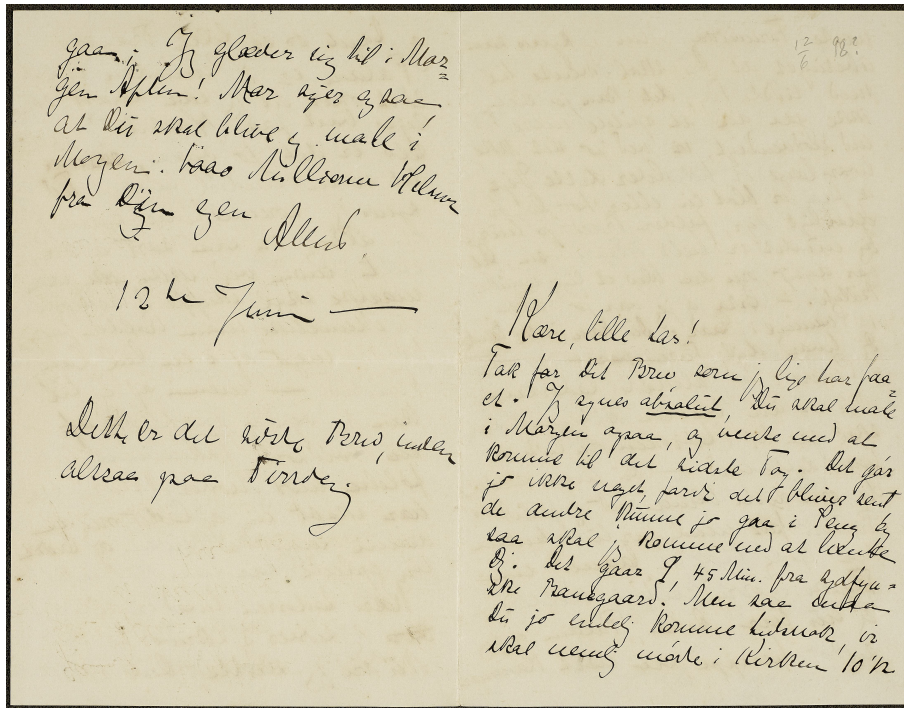 gaa. Jeg glæder mig til i Mor=
gen Aften! Mor siger ogsaa
at Du skal blive og male i
Morgen. 1000 Millioner Hilsner
fra Din egen
Alhed.
12te Juni —
Dette er det sidste Brev, inden
altsaa paa Tirsdag.
12/6 98?
Kære, lille Las!
Tak for Dit Brev som jeg lige har faa=
et. Jeg synes absolut, Du skal male
i Morgen ogsaa, og vente med at
komme til det sidste Tog. Det gør
jo ikke noget, fordi det bliver sent
de andre kunne jo gaa i Seng og
saa skal jeg komme ned at hente
Dig. Det gaar 9, 45 Min. fra sydfyn=
ske Banegaard. Men saa
Du jo endelig komme tidsnok, vi
skal nemlig møde i Kirken 10 ½